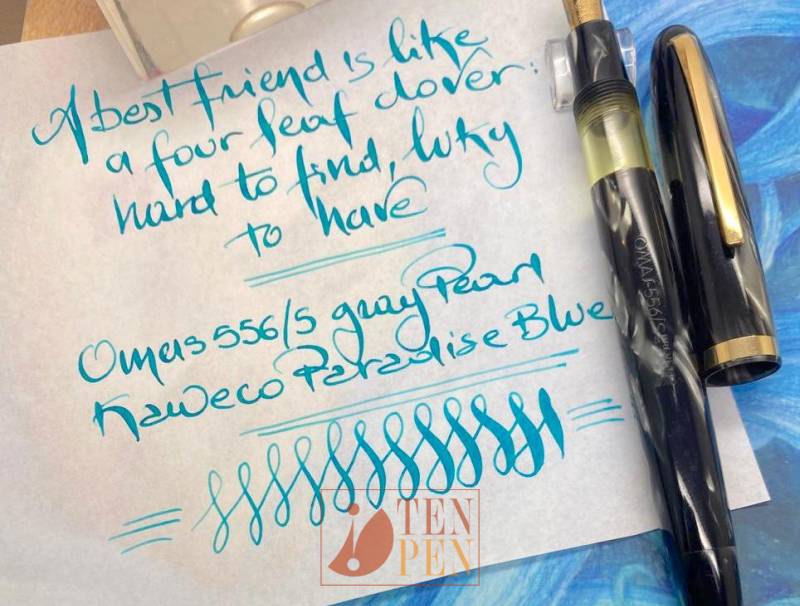 A best friend is like
a four leaf clover:
hard to find, luky
to have
Omas 556/S gray Pearl
Kaweco Paradise Blue
OMAS 556/S
TEN
PEN